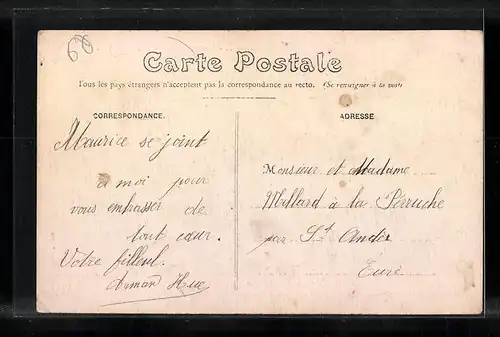 60
Carte Postale
Tous les pays étrangers n'acceptent pas la correspondance au recto. (Se renseigner à la poste
CORRESPONDANCE.
Maurice se joint
à moi pour
vous embrasser de
tout cœur.
Votre filleul.
Arman Hue
ADRESSE
Monsieur et Madame
Millard à la Perruche
par St André
Eure